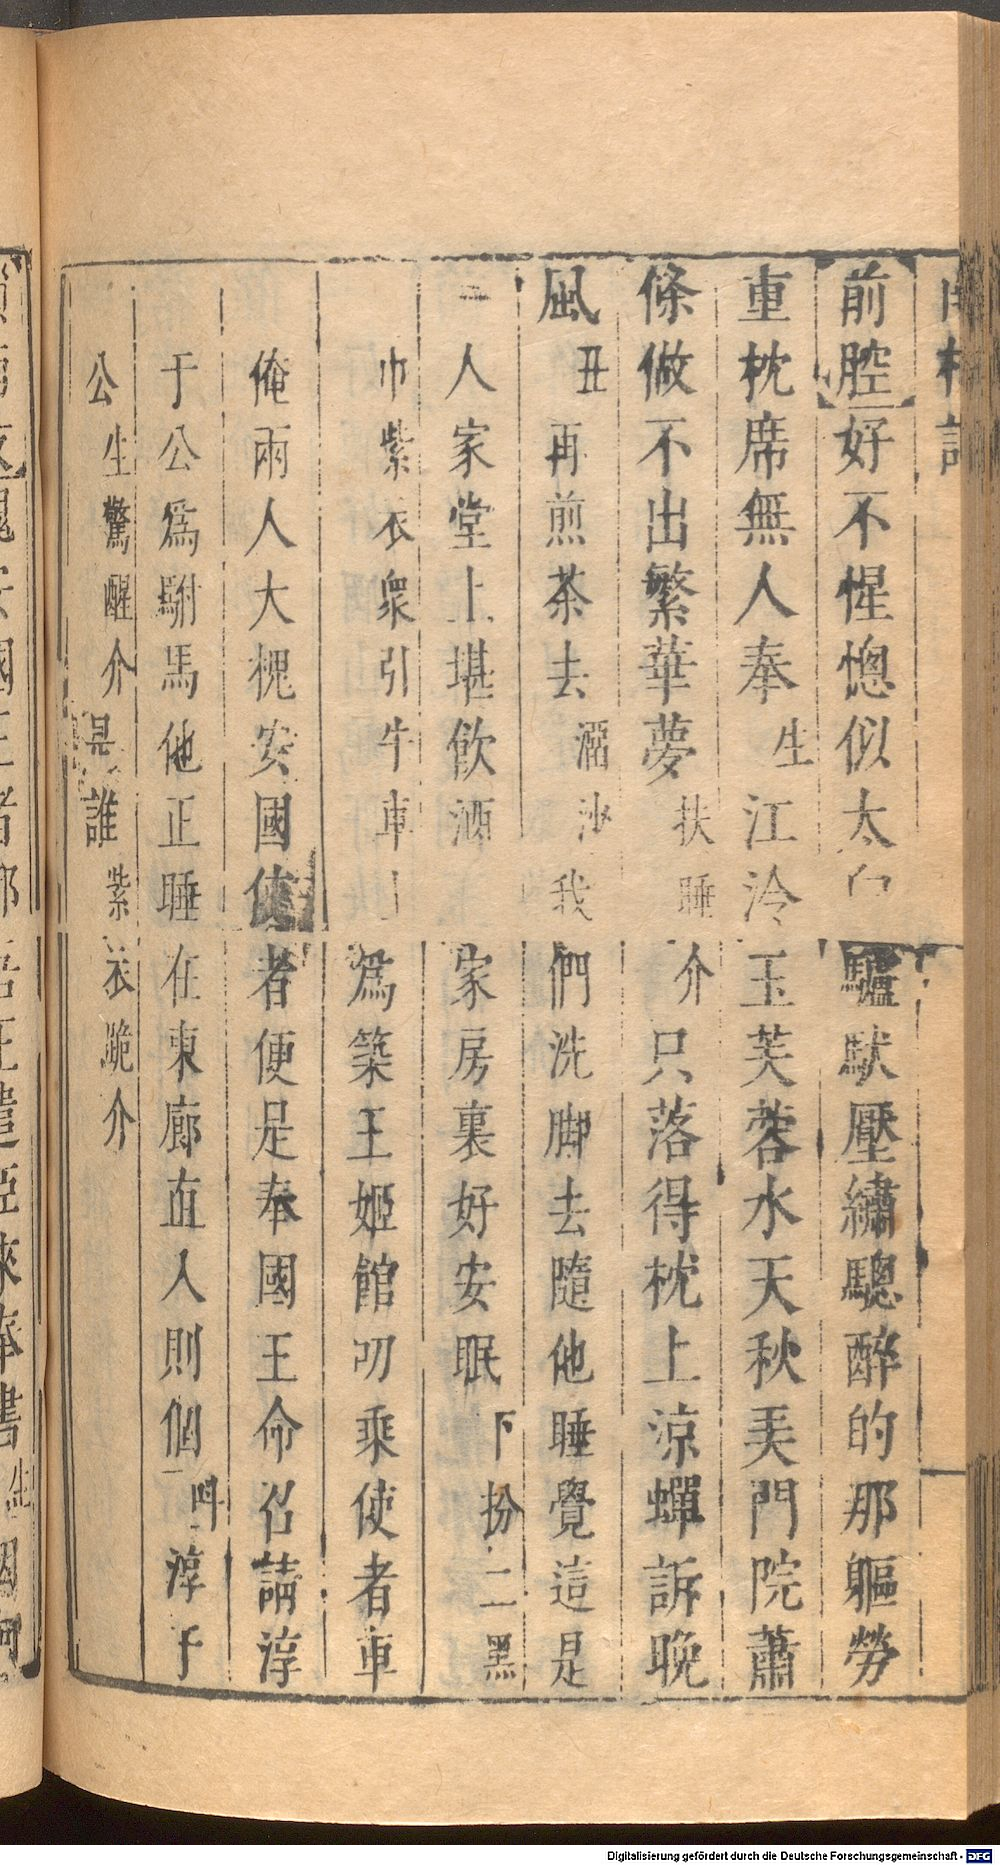 南柯記
前腔好不惺憁似太白驢馱壓繡驄醉的那軀勞
重枕席無人奉生江冷玉芙蓉水天秋美門院蕭
條做不出繁華夢扶睡介只落得枕上涼蟬訴晚
風丑再煎茶去溜沙我們洗脚去隨他睡覺這是
一人家堂上堪飲酒家房裏好安眠下扮二黑
巾紫衣衆引牛車上爲築王姬館叨乘使者車
俺兩人大槐安國使者便是奉國王命召請淳
于公爲駙馬他正睡在東廊直入則個叫淳于
公生驚醒介是誰紫衣跪介
Digitalisierung gefördert durch die Deutsche Forschungsgemeinschaft - DFG